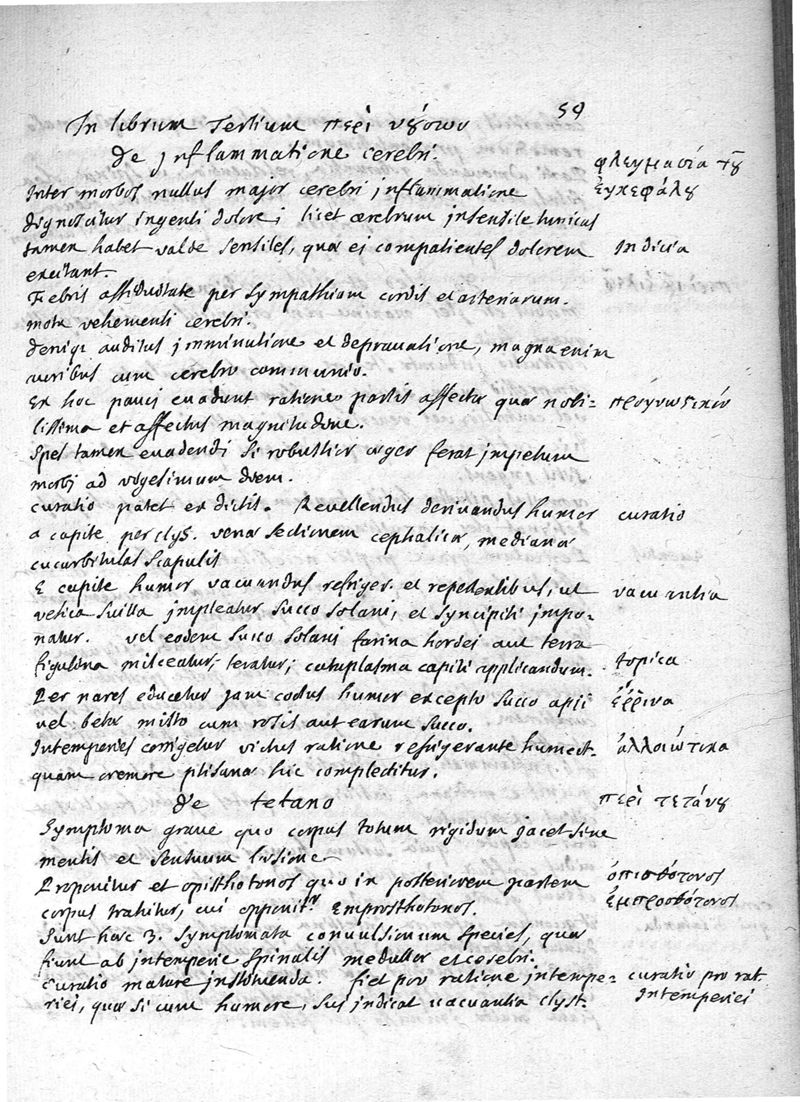 59
In librum Tertium περὶ νȣ́σων
de inflammatione cerebri.
φλεγμασία τȣ͂
Inter morbos nullus major cerebri inflammatione
ἐγκεφάλȣ
dignoscitur ingenti dolore; licet cerebrum insensile tunicas
tamen habet valde sensiles, quæ ei compatientes dolorem
Indicia
excitant.
Febris assiduitate per sympathiam cordis et arteriarum.
motu vehementi cerebri.
Deniq; auditus imminutione et depravatione, magna enim
auribus cum cerebro communio.
Ex hoc pauci evadunt ratione partis affectæ quæ nobi=
προγνωϛικόν
lissima et affectus magnitudine.
Spes tamen evadendi si robustior æger ferat impetum
morbi ad vigesimum diem.
curatio patet ex dictis. Revellendus derivandus humor
curatio
a capite per clys. venæ sectionem cephalicæ, medianæ
cucurbitulas scapulis
E capite humor vacuandus refriger. et repellentibus, ut
vacuantia
vesica suilla impleatur succo solani, et syncipiti impo-
natur. vel eodem succo solani farina hordei aut terra
figulina misceatur, teratur; cataplasma capiti applicandum.
topica
Per nares educetur jam coctus humor excepto succo apii
ἔῤῥινα
vel betæ misto cum rosis aut earum succo.
Intemperies corrigetur victus ratione refrigerante humect.
ἀλλοιώτικα
quam cremore ptisanæ hic complectitur.
de tetano
περὶ τετάνȣ
Symptoma grave quo corpus totum rigidum jacet sine
mentis et sensuum læsione
Proponitur et opisthotonos quo in posteriorem partem
ὀπισθότονος
corpus trahitur, cui opponitr Emprosthotonos.
ἐμπροσθότονος
Sunt hæc 3. symptomata convulsionum species, quæ
fiunt ab intemperie spinalis medullæ et cerebri.
curatio mature instituenda. fiet pro ratione intempe=
curatio pro rat.
riei, quæ si cum humore, sus indicat vacuantia clyst.
Intemperiei